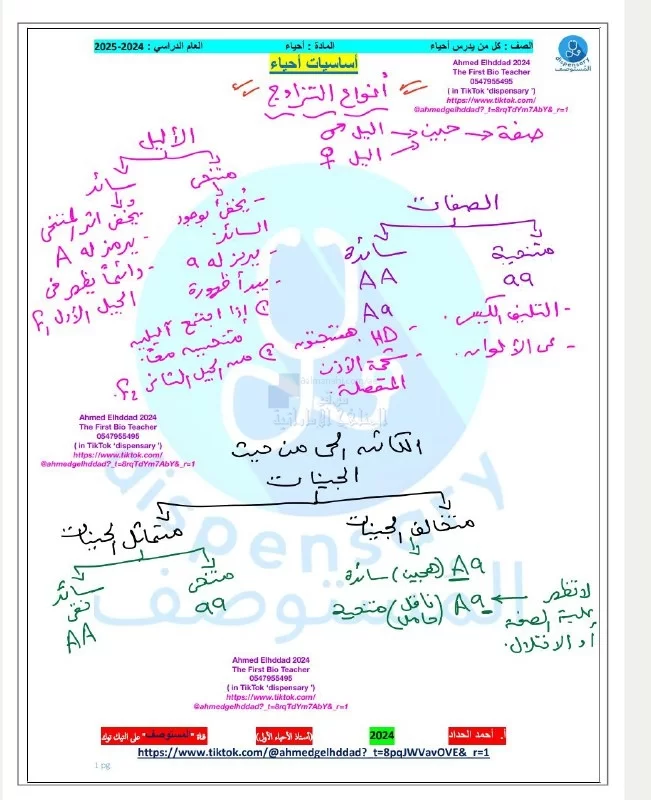 الصف : كل من يدرس أحياء
المادة : أحياء
العام الدراسي : 2024-2025
dispensary
المستوصف
Ahmed Elhddad 2024
The First Bio Teacher
0547955495
( in TikTok 'dispensary ')
https://www.tiktok.com/
@ahmedgelhddad?_t=8rqTdYm7AbY&_r=1
أساسيات أحياء
أنواع التزاوج
صفة ← جين ← اليل ♂
← اليل ♀
الأليل
متنحى
سائد
- يُخفى بوجود
السائد.
- يرمز له a
- يبدأ ظهورة
① إذا اجتمع آليلين
متنحيين معًا.
② من الجيل الثانى F2.
- يخفى أثر المتنحى
- يرمز له A
- دائماً يظهر فى
الجيل الأول F1
الصفات
متنحية
aa
- التليف الكيسى.
- عمى الألوان.
سائدة
AA
Aa
- HD هنتجتون
- شحمة الأذن
المنفصلة.
موقع
المناهج الإماراتية
Ahmed Elhddad 2024
The First Bio Teacher
0547955495
( in TikTok 'dispensary ')
https://www.tiktok.com/
@ahmedgelhddad?_t=8rqTdYm7AbY&_r=1
الكائن الحى من حيث
الجينات
متخالف الجينات
Aa (هجين) سائدة
Aa (ناقل) (حامل) متنحية
لا تظهر
عليه الصفة
أو الاختلال.
متماثل الجينات
متنحى
aa
سائد
نقى
AA
dispensary
المستوصف
Ahmed Elhddad 2024
The First Bio Teacher
0547955495
( in TikTok 'dispensary ')
https://www.tiktok.com/
@ahmedgelhddad?_t=8rqTdYm7AbY&_r=1
أ. أحمد الحداد
2024
(أستاذ الأحياء الأول)
قناة "المستوصف" على التيك توك
https://www.tiktok.com/@ahmedgelhddad?_t=8pqJWVavOVE&_r=1
1 pg.